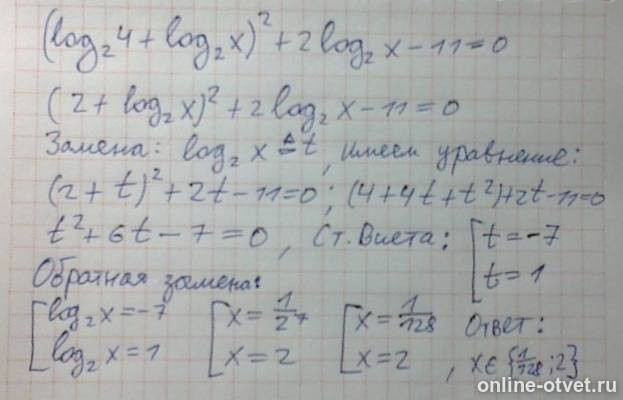 (log₂4 + log₂x)² + 2log₂x − 11 = 0
(2 + log₂x)² + 2log₂x − 11 = 0
Замена: log₂x ≜ t, имеем уравнение:
(2 + t)² + 2t − 11 = 0; (4 + 4t + t²) + 2t − 11 = 0
t² + 6t − 7 = 0, Ст. Виета: [ t = −7
t = 1
Обратная замена:
[ log₂x = −7 [ x = 1/2⁷ [ x = 1/128 Ответ:
log₂x = 1 x = 2 x = 2, x ∈ {1/128; 2}
online-otvet.ru